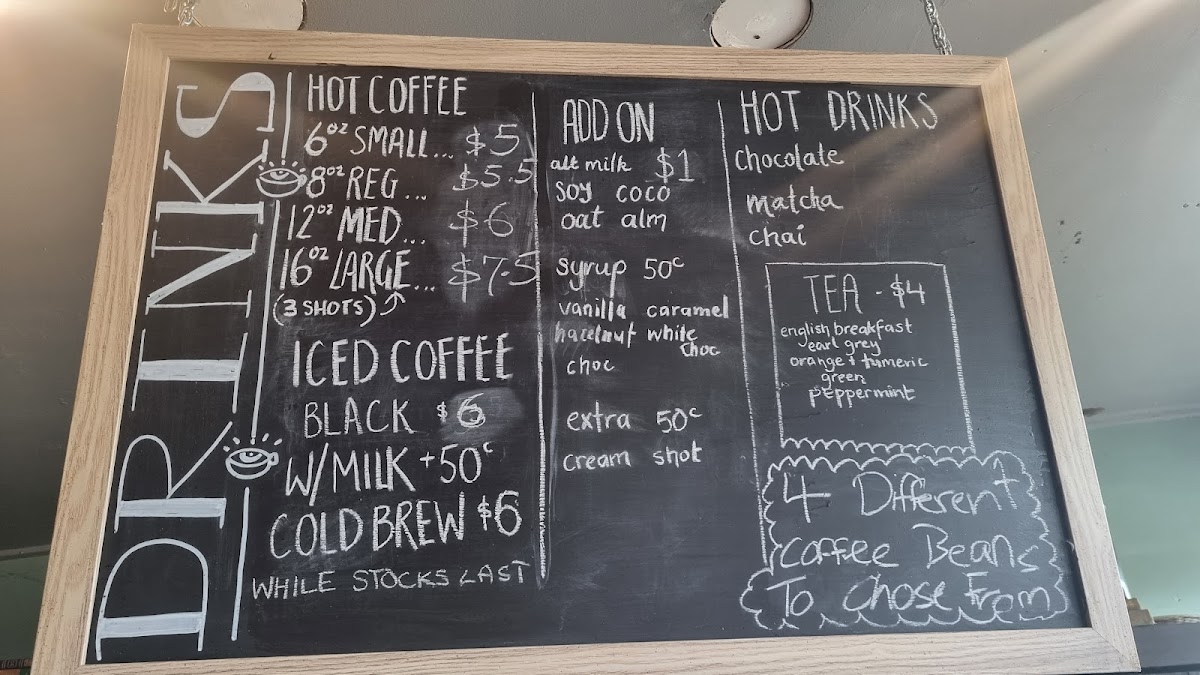 DRINKS
HOT COFFEE
6oz SMALL... $5
8oz REG... $5.5
12oz MED... $6
16oz LARGE... $7.5
(3 SHOTS)
ICED COFFEE
BLACK $6
W/MILK +50c
COLD BREW $6
WHILE STOCKS LAST
ADD ON
alt milk $1
soy coco
oat alm
syrup 50c
vanilla caramel
hazelnut white
choc
choc
extra 50c
cream shot
HOT DRINKS
chocolate
matcha
chai
TEA - $4
english breakfast
earl grey
orange + tumeric
green
peppermint
4 Different
Coffee Beans
To Chose From